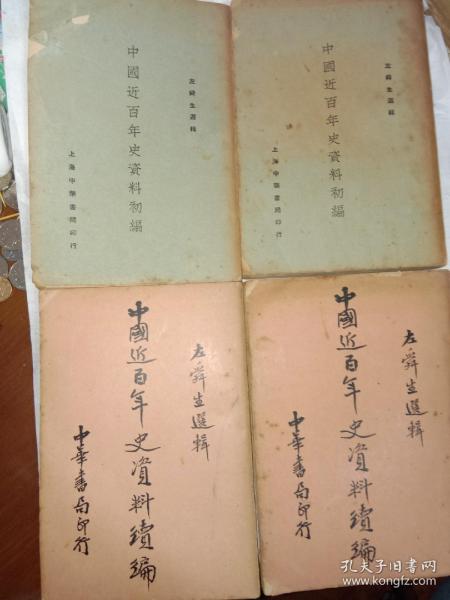 左舜生選輯
中國近百年史資料初編
上海中華書局印行
左舜生選輯
中國近百年史資料初編
上海中華書局印行
左舜生選輯
中國近百年史資料續編
中華書局印行
左舜生選輯
中國近百年史資料續編
中華書局印行
孔夫子旧书网
www.kongfz.com